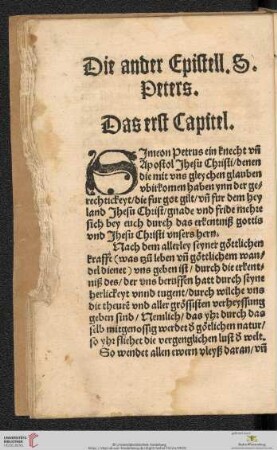 Die ander Epistell. S.
Peters.
Das erst Capitel.
SImeon Petrus ein knecht vñ
Apostol Jhesu Christi/denen
die mit vns gleychen glauben
vbirkomen haben ynn der ge-
rechtickeyt/die fur got gilt/vñ fur dem hey
land Jhesu Christ/gnade vnd fride mehre
sich bey euch durch das erkentniß gottis
vnd Jhesu Christi vnsers hern.
Nach dem allerley seyner göttlichen
krafft (was zů leben vñ göttlichem wan/
del dienet) vns geben ist/durch die erkent/
niß des/der vns beruffen hatt durch seyne
herlickeyt vnnd tugent/durch wilche vns
die theurē vnd aller grössisten verheyssung
geben sind/Nemlich/das yhr durch das
selb mitgenossig werdet d̕ götlichen natur/
so yhr fliehet die vergenglichen lust d̕ welt.
So wendet allen ewern vleyß daran/vñ